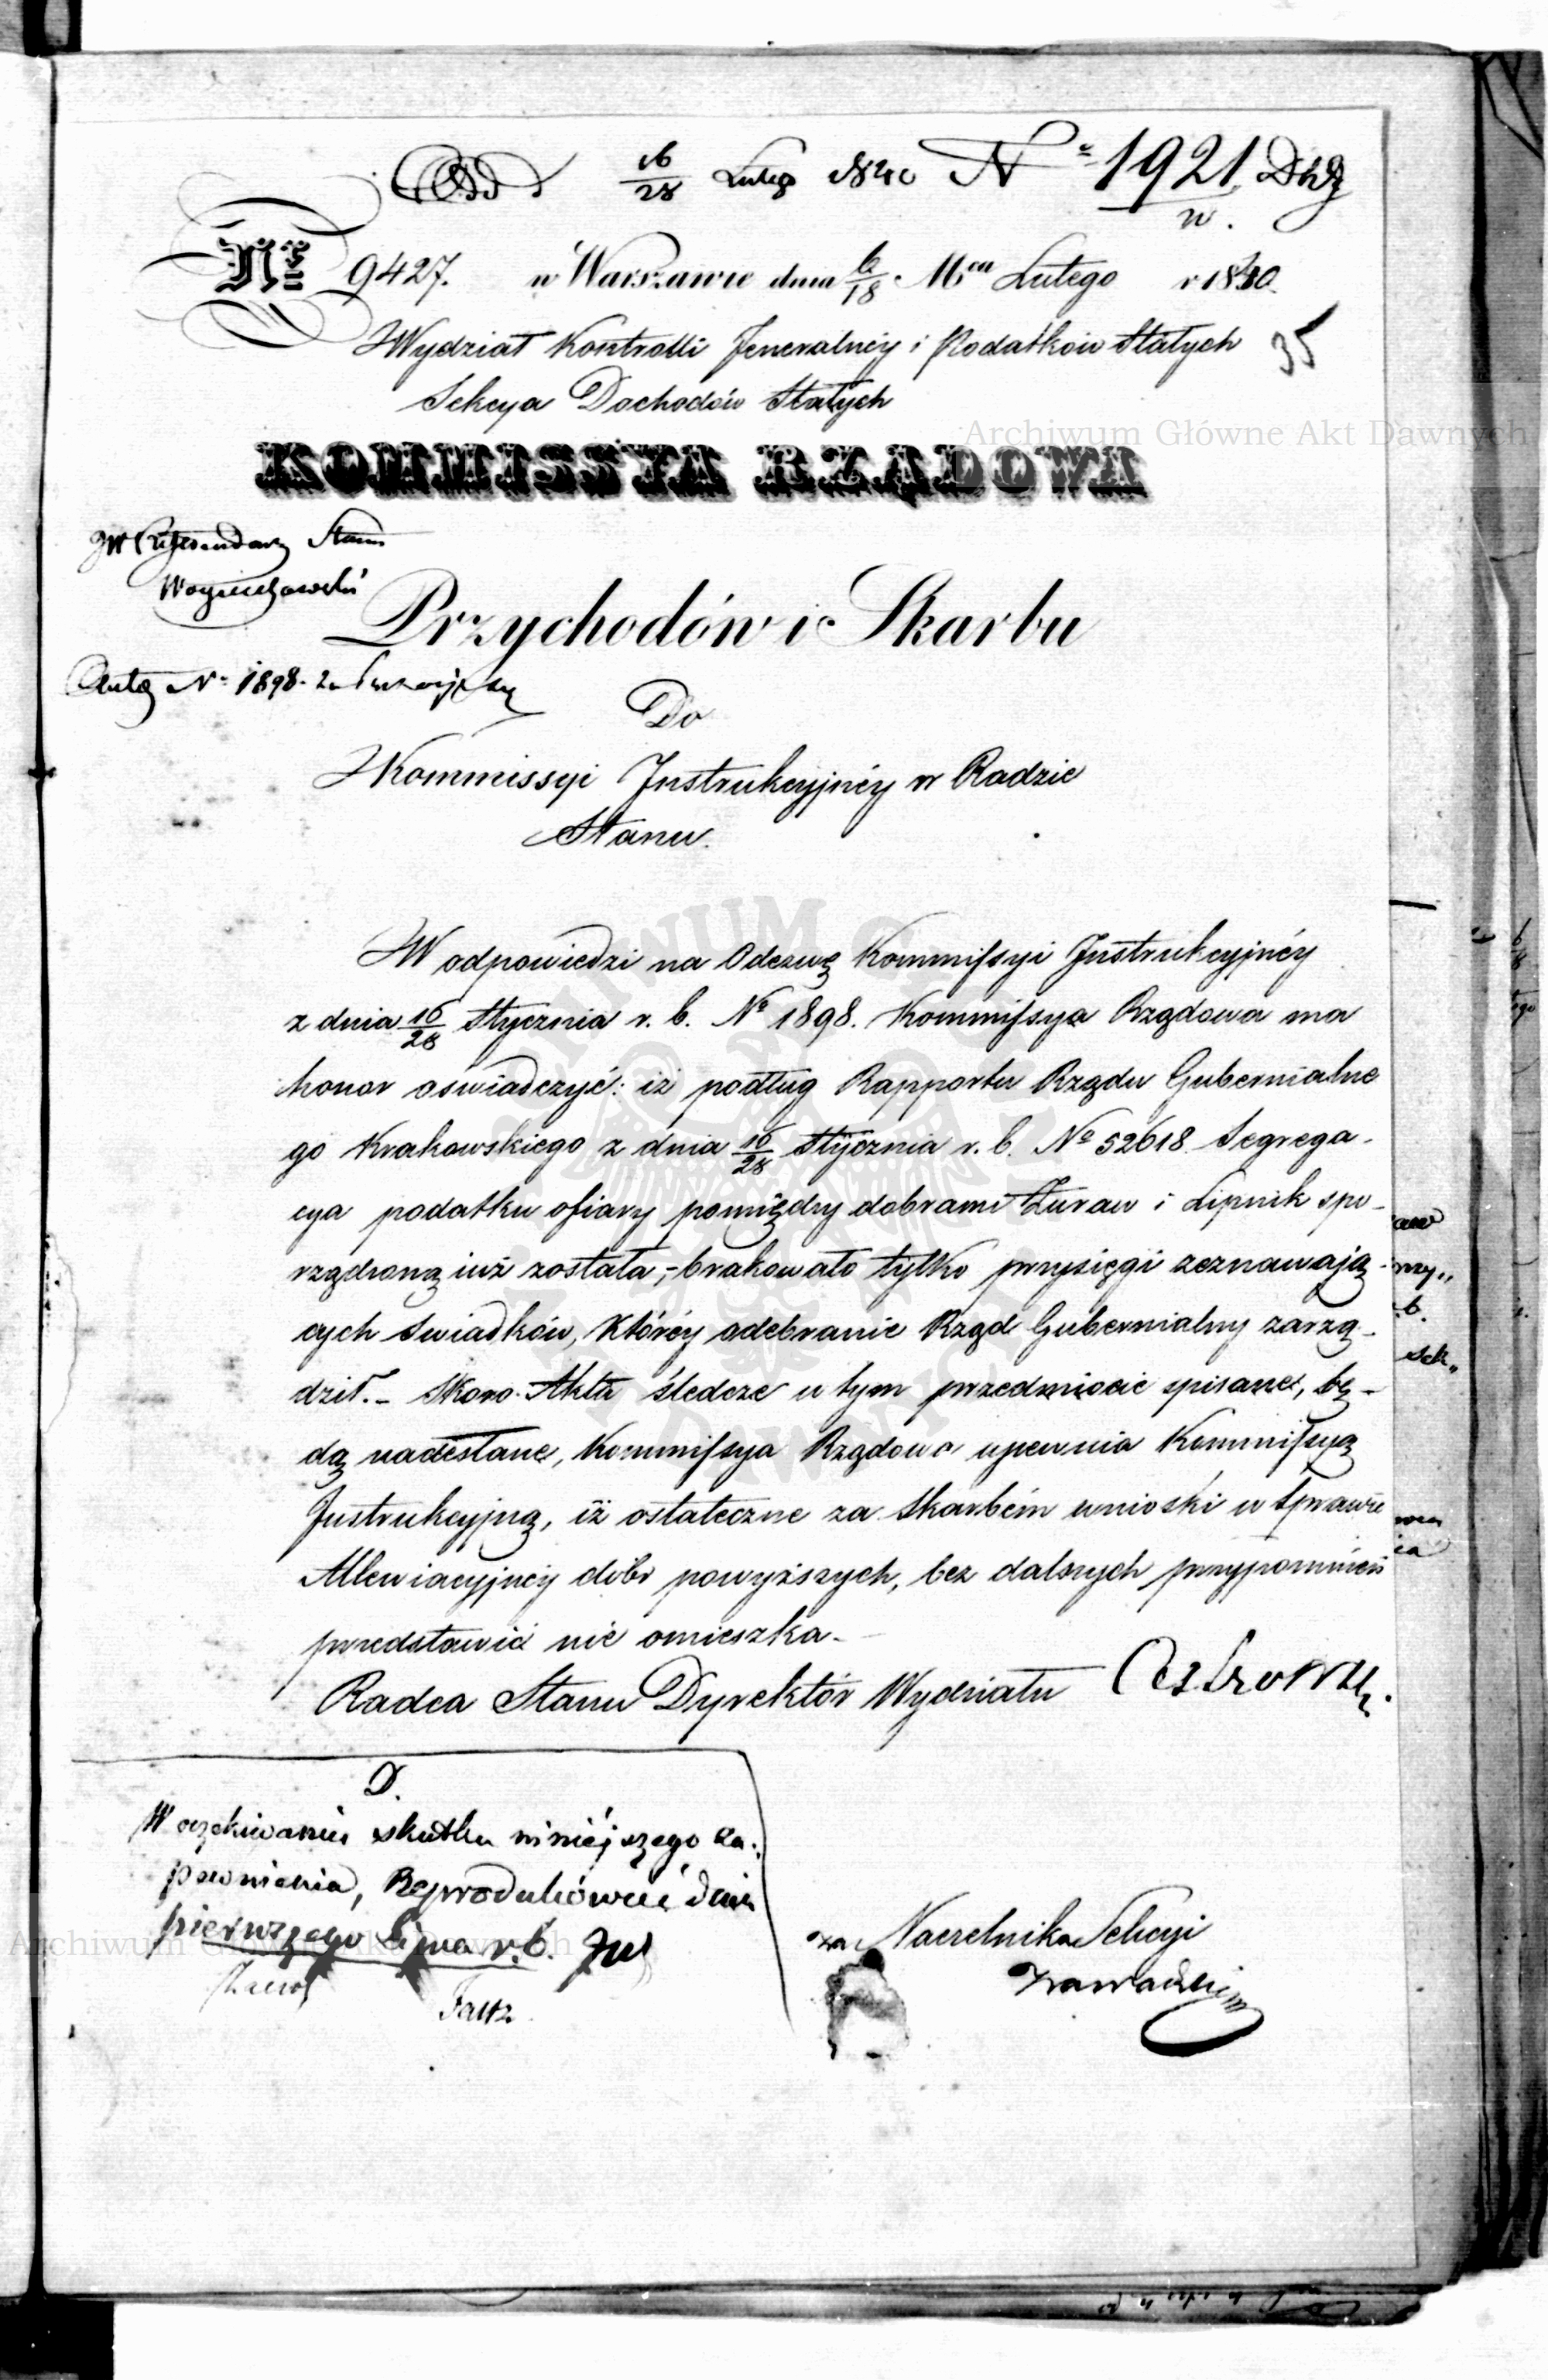 Odd 16/28 Lutego 1840 No 1921 Dkg
w.
No 9427. w Warszawie dnia 6/18 Mca Lutego r 1840.
Wydział Kontrolli Jeneralnéy i Podatków Stałych
35
Sekcya Dochodów Stałych
KOMMISSYA RZĄDOWA
JW Referendarz Stanu
Woyciechowski
Przychodów i Skarbu
No 1898.
Do
Kommissyi Instrukcyjnéy w Radzie
Stanu.
W odpowiedzi na Odezwę Kommissyi Instrukcyjnéy
z dnia 16/28 Stycznia r. b. No 1898. Kommissya Rządowa ma
honor oświadczyć: iż podług Rapportu Rządu Gubernialne
go Krakowskiego z dnia 16/28 Stycznia r. b. No 52618. Segrega-
cya podatku ofiary pomiędzy dobrami Żuraw i Lipnik spo-
rządzoną iuż została,- brakowało tylko przysięgi zeznawają-
cych swiadków, któréy odebranie Rząd Gubernialny zarzą-
dził.- Skoro Akta śledcze w tym przedmiocie spisane, bę-
dą nadesłane, Kommissya Rządowa upewnia Kommissyą
Instrukcyjną, iż ostateczne za Skarbém wnioski w Sprawie
Allewiacyjnéy dóbr powyższych, bez dalszych przypomnień
przedstawić nie omieszka.-
Radca Stanu Dyrektór Wydziału
D.
W oczekiwaniu skutku niniejszego za-
pewnienia, Reprodukówać dnia
pierwszego Lipca r.b.
Faltz
za Naczelnika Sekcyi
Zawadzki
Archiwum Główne Akt Dawnych
Archiwum Główne Akt Dawnych